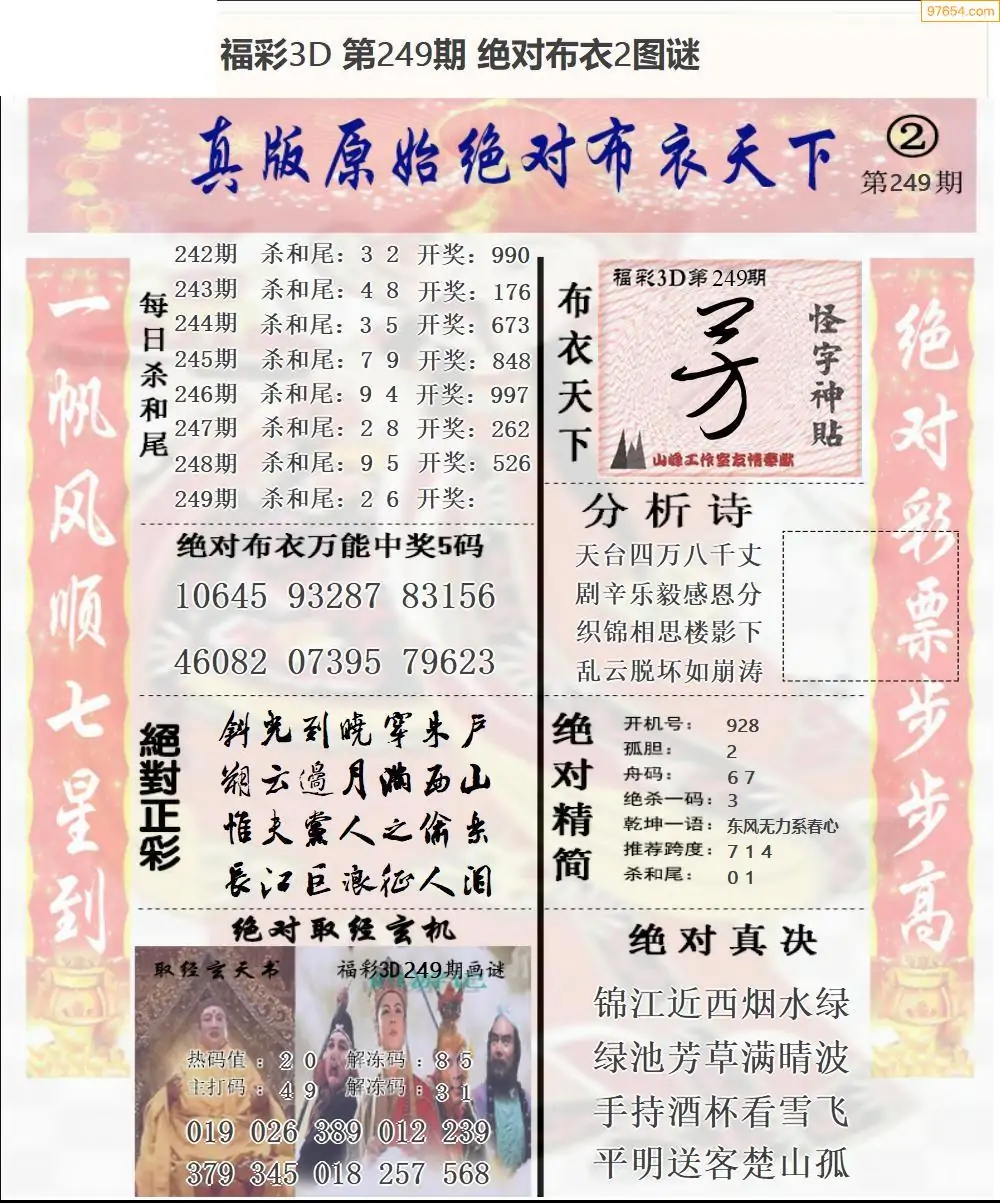 97654.com
福彩3D 第249期 绝对布衣2图谜
真版原始绝对布衣天下
②
第249期
一帆风顺七星到
每日杀和尾
242期 杀和尾：3 2 开奖：990
243期 杀和尾：4 8 开奖：176
244期 杀和尾：3 5 开奖：673
245期 杀和尾：7 9 开奖：848
246期 杀和尾：9 4 开奖：997
247期 杀和尾：2 8 开奖：262
248期 杀和尾：9 5 开奖：526
249期 杀和尾：2 6 开奖：
绝对布衣万能中奖5码
10645 93287 83156
46082 07395 79623
絕對正彩
斜光到晓穿朱户
朔云過月满西山
惟夫黨人之偷乐
長江巨浪征人泪
绝对取经玄机
取经玄天书
福彩3D249期画谜
热码值：20 解冻码：85
主打码：49 解冻码：31
019 026 389 012 239
379 345 018 257 568
布衣天下
福彩3D第249期
怪字神貼
山峰工作室友情奉献
分析诗
天台四万八千丈
剧辛乐毅感恩分
织锦相思楼影下
乱云脱坏如崩涛
绝对精简
开机号：928
孤胆：2
舟码：67
绝杀一码：3
乾坤一语：东风无力系春心
推荐跨度：714
杀和尾：01
绝对真决
锦江近西烟水绿
绿池芳草满晴波
手持酒杯看雪飞
平明送客楚山孤
绝对彩票步步高